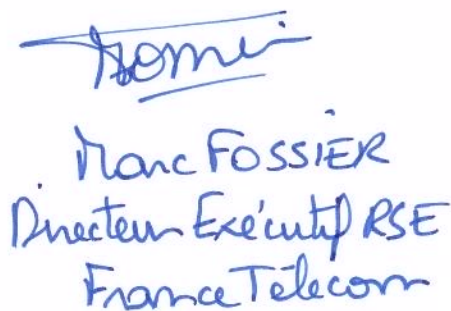 Marc FOSSIER
Directeur Exécutif RSE
France Télécom